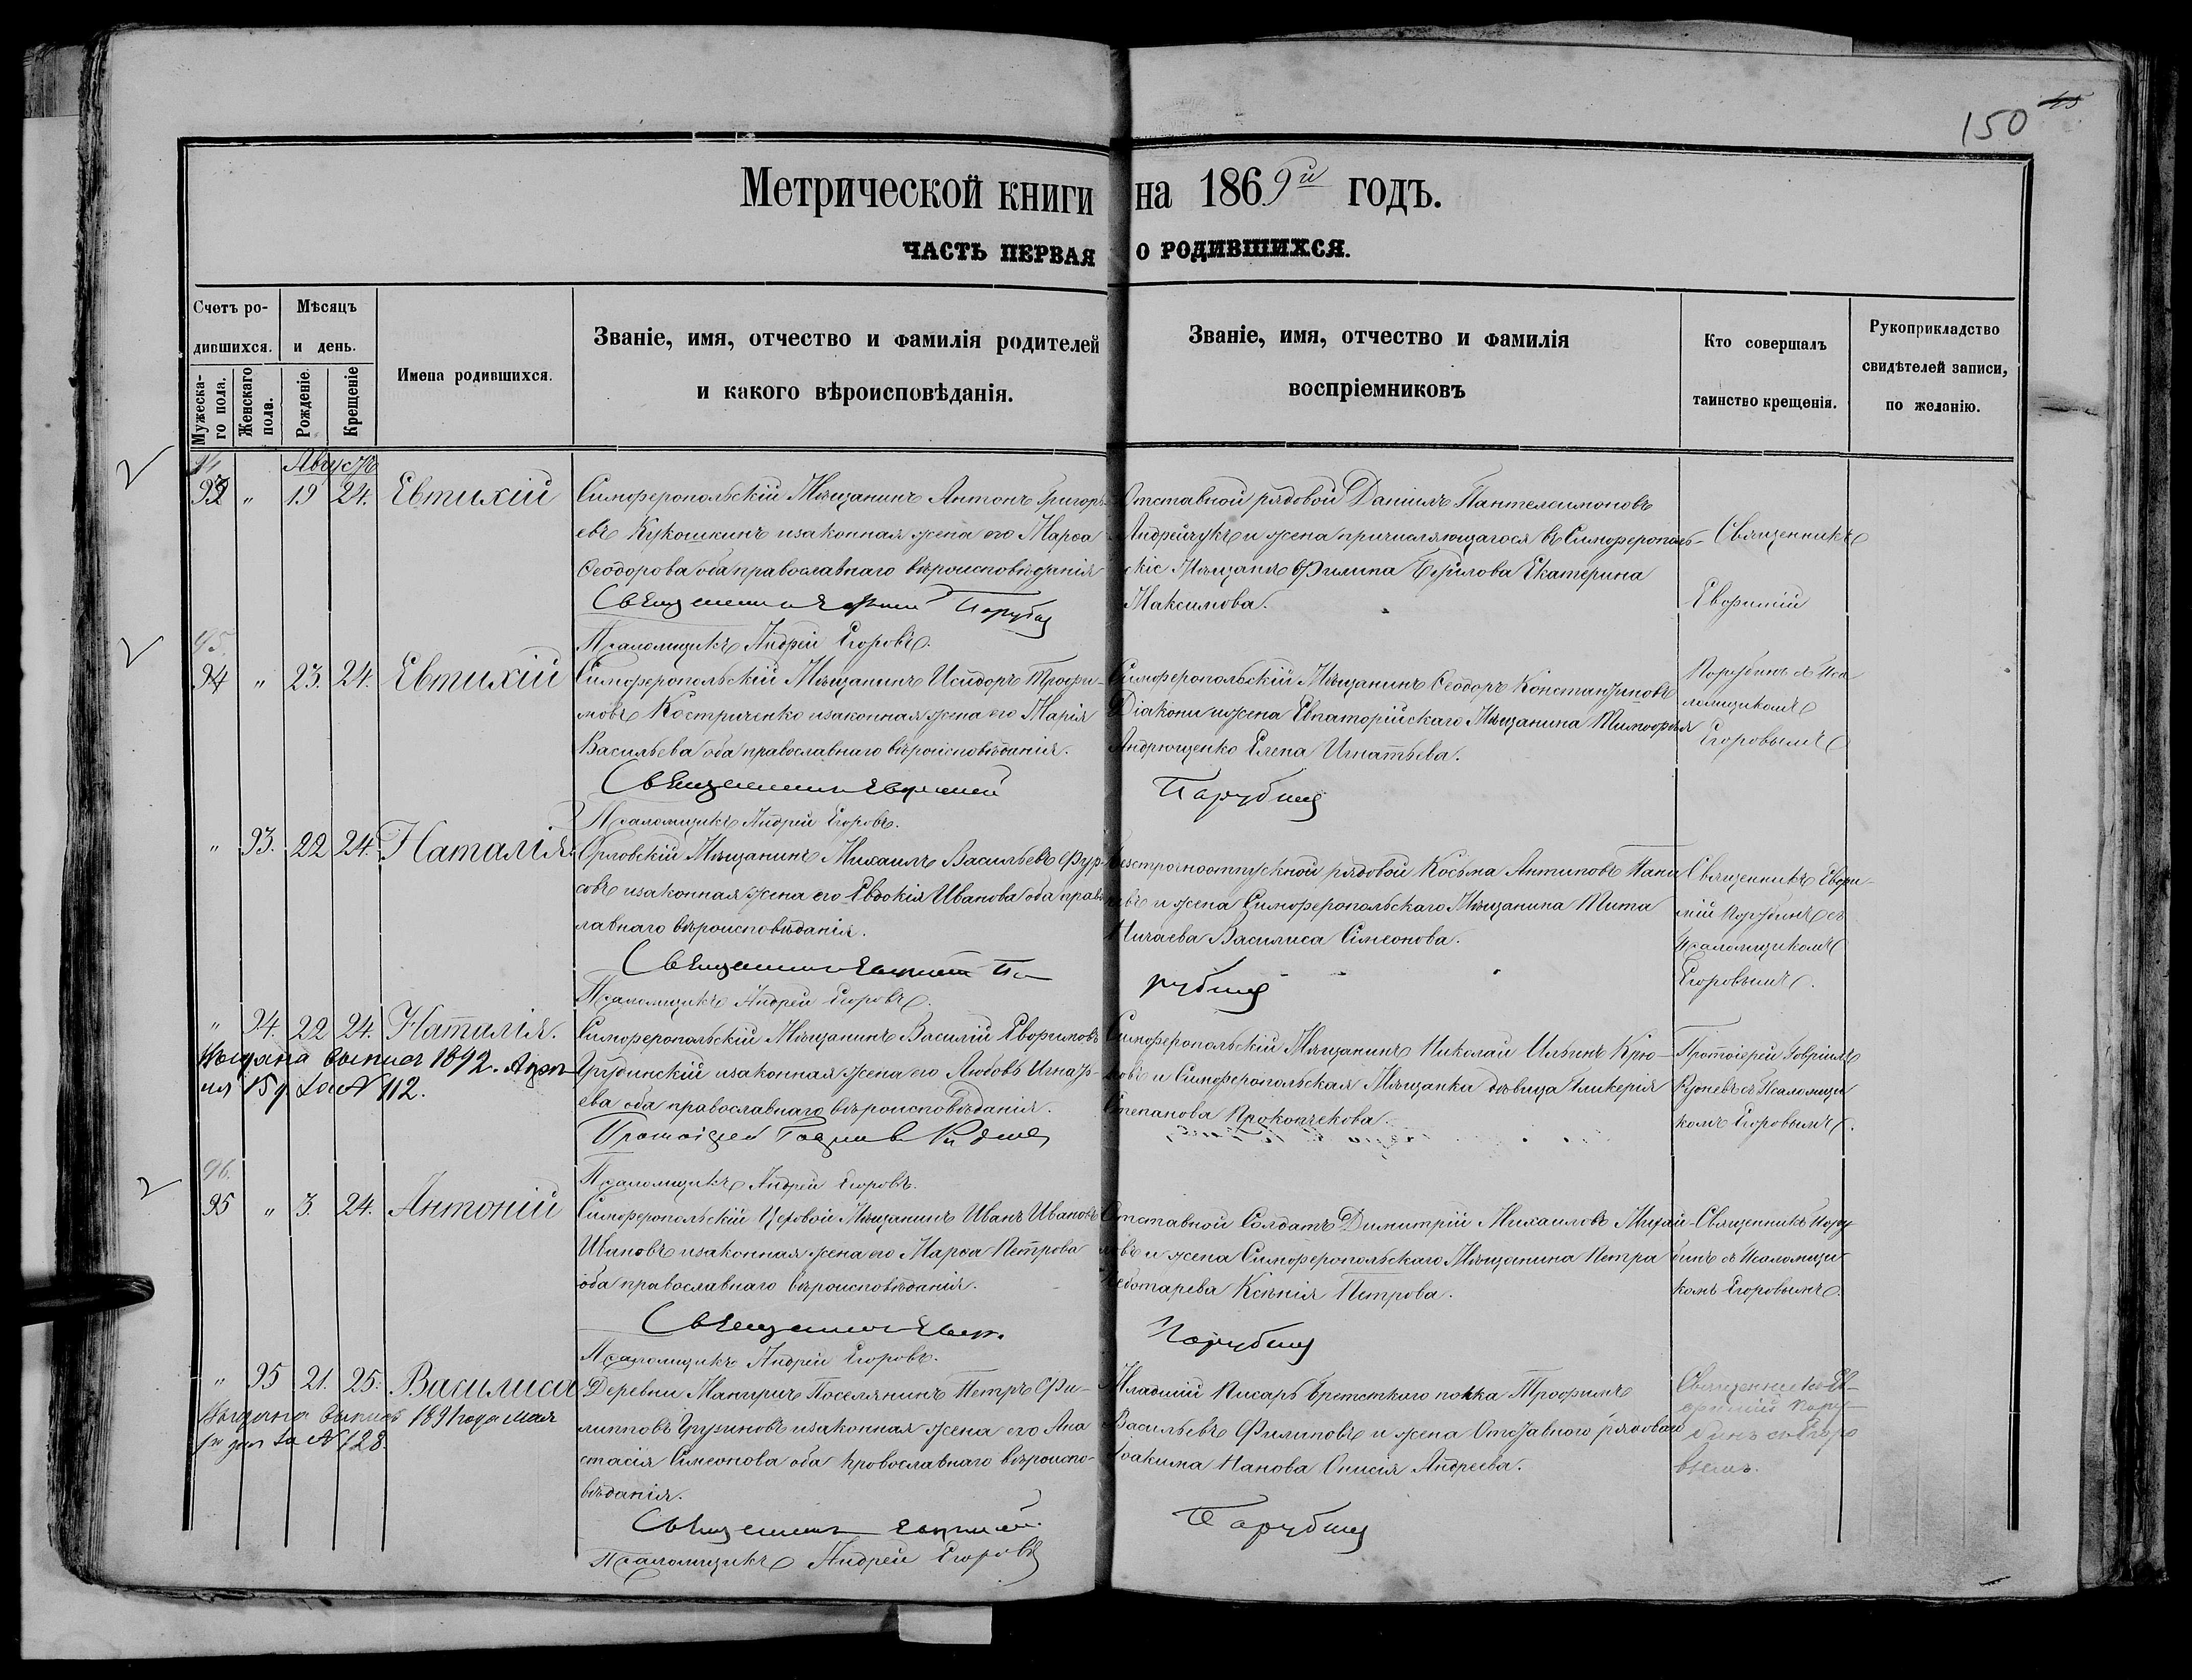 150 45
Метрической книги на 1869й годъ.
ЧАСТЬ ПЕРВАЯ О РОДИВШИХСЯ.
Счетъ родившихся.
Мужескаго пола.
Женскаго пола.
Мѣсяцъ и день.
Рожденіе.
Крещеніе
Имена родившихся.
Званіе, имя, отчество и фамилія родителей
и какого вѣроисповѣданія.
Званіе, имя, отчество и фамилія
воспріемниковъ
Кто совершалъ
таинство крещенія.
Рукоприкладство
свидѣтелей записи,
по желанію.
Августъ
93 " 19 24. Евтихій
Симферопольскій Мѣщанинъ Антонъ Григорь-
евъ Кукошкинъ изаконная жена его Марѳа
Ѳеодорова оба православнаго вѣроисповѣданія
Священникъ Порубин
Псаломщикъ Андрей Егоровъ.
Отставной рядовой Даніилъ Пантелеимоновъ
Андрейчукъ и жена причисляющагося въ Симферополь-
скіе Мѣщане Филипа Екатерина
Максимова.
Священникъ
Евфимій
Порубинъ съ Пса
ломщикомъ
Егоровымъ
95.
94 " 23. 24. Евтихій
Симферопольскій Мѣщанинъ Исидоръ Трофи-
мовъ Костриченко изаконная жена его Марія
Васильева оба православнаго вѣроисповѣданія.
Священникъ Евфимій Порубин
Псаломщикъ Андрей Егоровъ.
Симферопольскій Мѣщанинъ Ѳеодоръ Константиновъ
Діакони жена Евпаторійскаго Мѣщанина Тимоѳея
Андрющенко Елена Игнатьева.
" 93. 22 24. Наталія.
Орловскій Мѣщанинъ Михаилъ Васильевъ Фур-
совъ изаконная жена его Евдокія Иванова оба правос
лавнаго вѣроисповѣданія.
Священникъ Евфимій По
рубин
Псаломщикъ Андрей Егоровъ.
Безсрочноотпускной рядовой Косьма Антиповъ
и жена Симферопольскаго Мѣщанина Тита
Ничаева Василиса Симеонова.
Священникъ Евфи-
мій Порубинъ съ
Псаломщикомъ
Егоровымъ.
" 94. 22 24. Наталія.
Выдана выпись 1892. Апрѣ-
ля 15 д. за № 112.
Симферопольскій Мѣщанинъ Василій Евфимовъ
Грудинскій изаконная жена его Любовь Игнать-
ева оба православнаго вѣроисповѣданія.
Протоіерей Гавріилъ Руднев
Псаломщикъ Андрей Егоровъ.
Симферопольскій Мѣщанинъ Николай Ильинъ Крю-
ковъ и Симферопольская Мѣщанка дѣвица Гликерія
Степанова Прокопчекова.
Протоіерей Гавріилъ
Рудневъ съ Псаломщи
комъ Егоровымъ.
96.
95 " 3. 24. Антоній
Симферопольскій Цеховой Мѣщанинъ Иванъ Ивановъ
Ивановъ изаконная жена его Марѳа Петрова
оба православнаго вѣроисповѣданія.
Священникъ Евф. Порубин
Псаломщикъ Андрей Егоровъ.
Отставной Солдатъ Димитрій Михаиловъ Михай-
ловъ и жена Симферопольскаго Мѣщанина Петра
Чеботарева Ксенія Петрова.
Священникъ Пору
бинъ съ Псаломщи-
комъ Егоровымъ.
" 95 21. 25. Василиса
Выдана выпись 1891 года мая
дня за № 128.
Деревни Мангришъ Поселянинъ Петръ Фи-
липповъ изаконная жена его Ана
стасія Симеонова оба православнаго вѣроиспо-
вѣданія.
Священникъ Евфимій Порубин
Псаломщикъ Андрей Егоровъ
Младшій Писарь полка Трофимъ
Васильевъ Филиповъ и жена Отставного рядоваго
Іоакима Панова Онисія Андреева.
Священникъ Ев-
фимій Пору-
бинъ съ Егоро
вымъ.